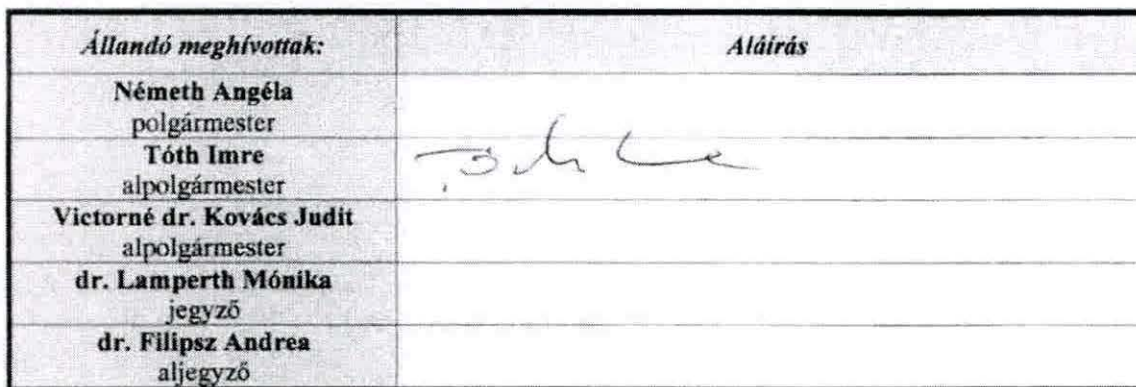 Állandó meghívottak: Aláírás
Németh Angéla
polgármester
Tóth Imre
alpolgármester
Victorné dr. Kovács Judit
alpolgármester
dr. Lamperth Mónika
jegyző
dr. Filipsz Andrea
aljegyző